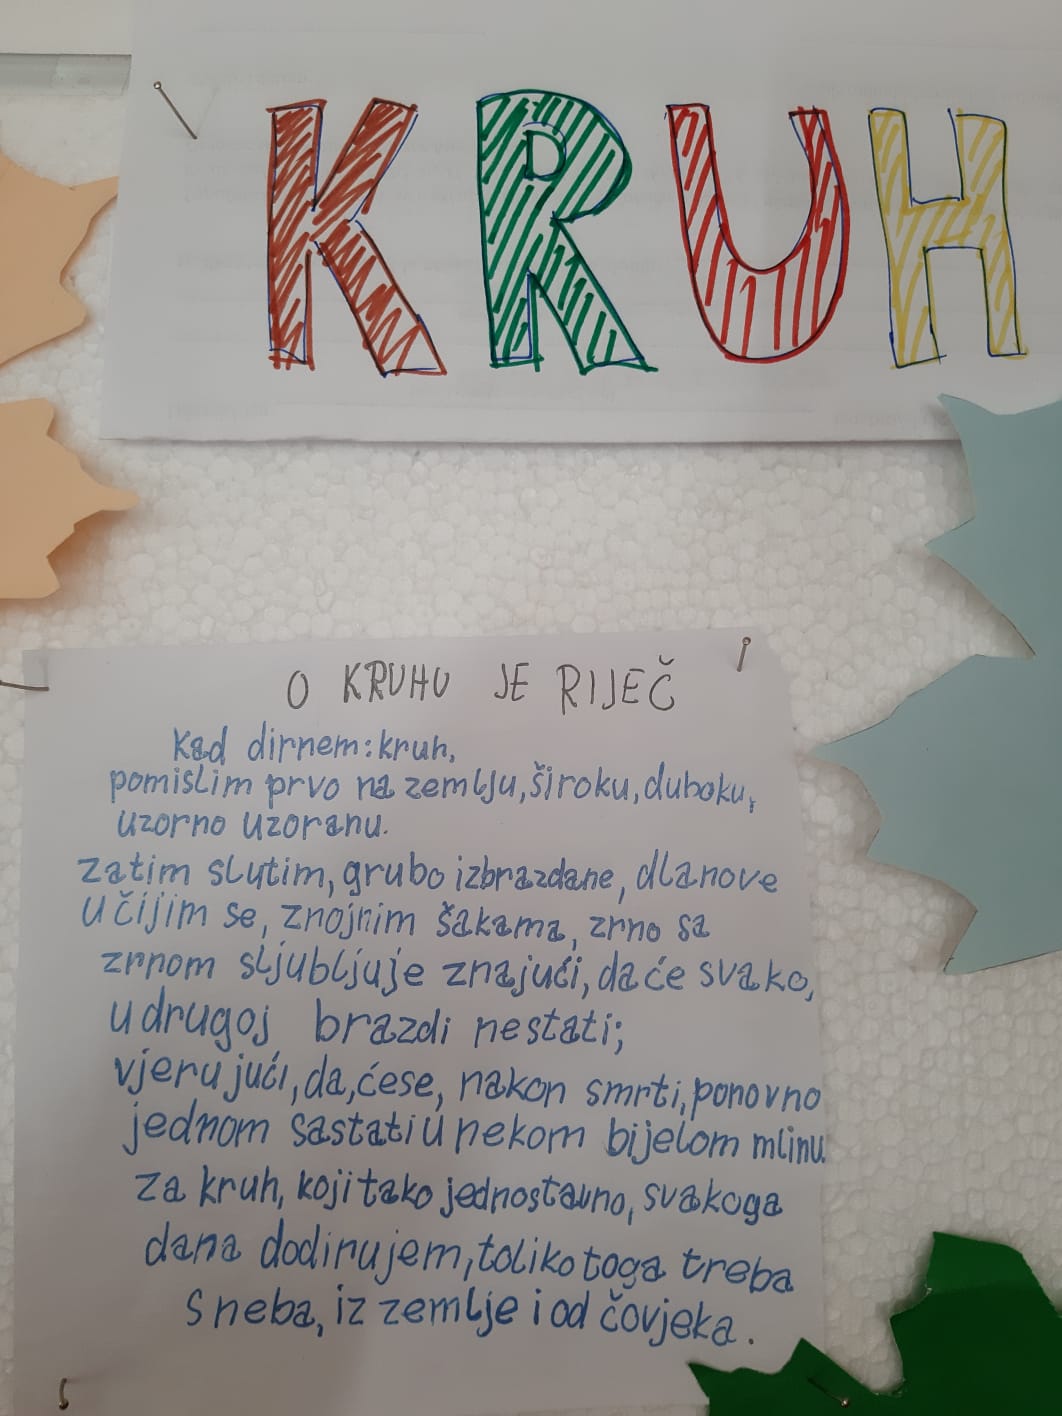 KRUH
O KRUHU JE RIJEČ
Kad dirnem: kruh,
pomislim prvo na zemlju, široku, duboku,
uzorno uzoranu.
zatim slutim, grubo izbrazdane, dlanove
U čijim se, znojnim šakama, zrno sa
zrnom sljubljuje znajući, da će svako,
u drugoj brazdi nestati;
vjerujući, da, ćese, nakon smrti, ponovno
jednom sastati u nekom bijelom mlinu.
za kruh, koji tako jednostavno, svakoga
dana dodirujem, toliko toga treba
s neba, iz zemlje i od čovjeka.